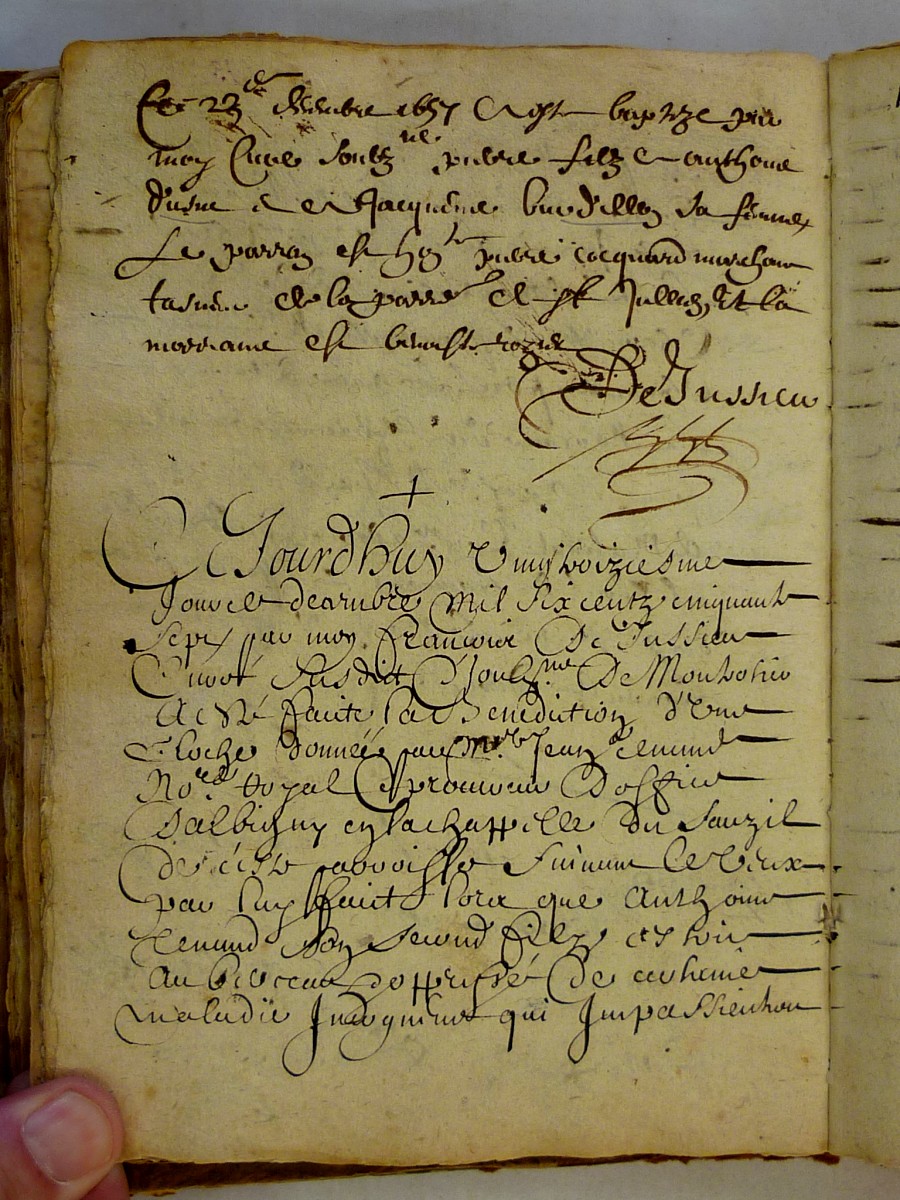 Ce 23e decembre 1657 A este baptize par
moy Curé soubzné pierre filz de anthoine
et de Jacquême sa femme
Le parrin est hon. pierre cocquard marchant
de la parre de st Jullien Et la
marraine est benoiste
De Jussieu
Ce Jourdhuy Vingtroiziesme
Jour de decembre Mil Six centz cinquante
Sept par moy francois De Jussieu
Curé susdit Soubz.né De Montrotier
A esté faicte la Benediction d'Une
Cloche donnée par Me Jean
No.re Royal Et procureur D'office
Dalbigny en la chappelle Du Sauzil
de ceste parroisse Suivant le Veux
par luy faict lors que Anthoine
son second filz estoit
Au berceau oppressé De certeine
maladie Incogneue qui Impassienton